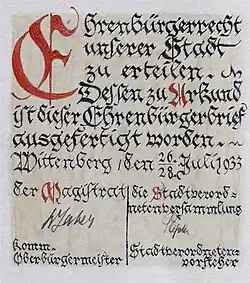 Ehrenbürgerrecht
unserer Stadt
zu erteilen.
Dessen zu Urkund
ist dieser Ehrenbürgerbrief
ausgefertigt worden.
Wittenberg, den 26./28. Juli 1933
der Magistrat die Stadtverord-
netenversammlung
komm.
Oberbürgermeister
Stadtverordneten-
vorsteher